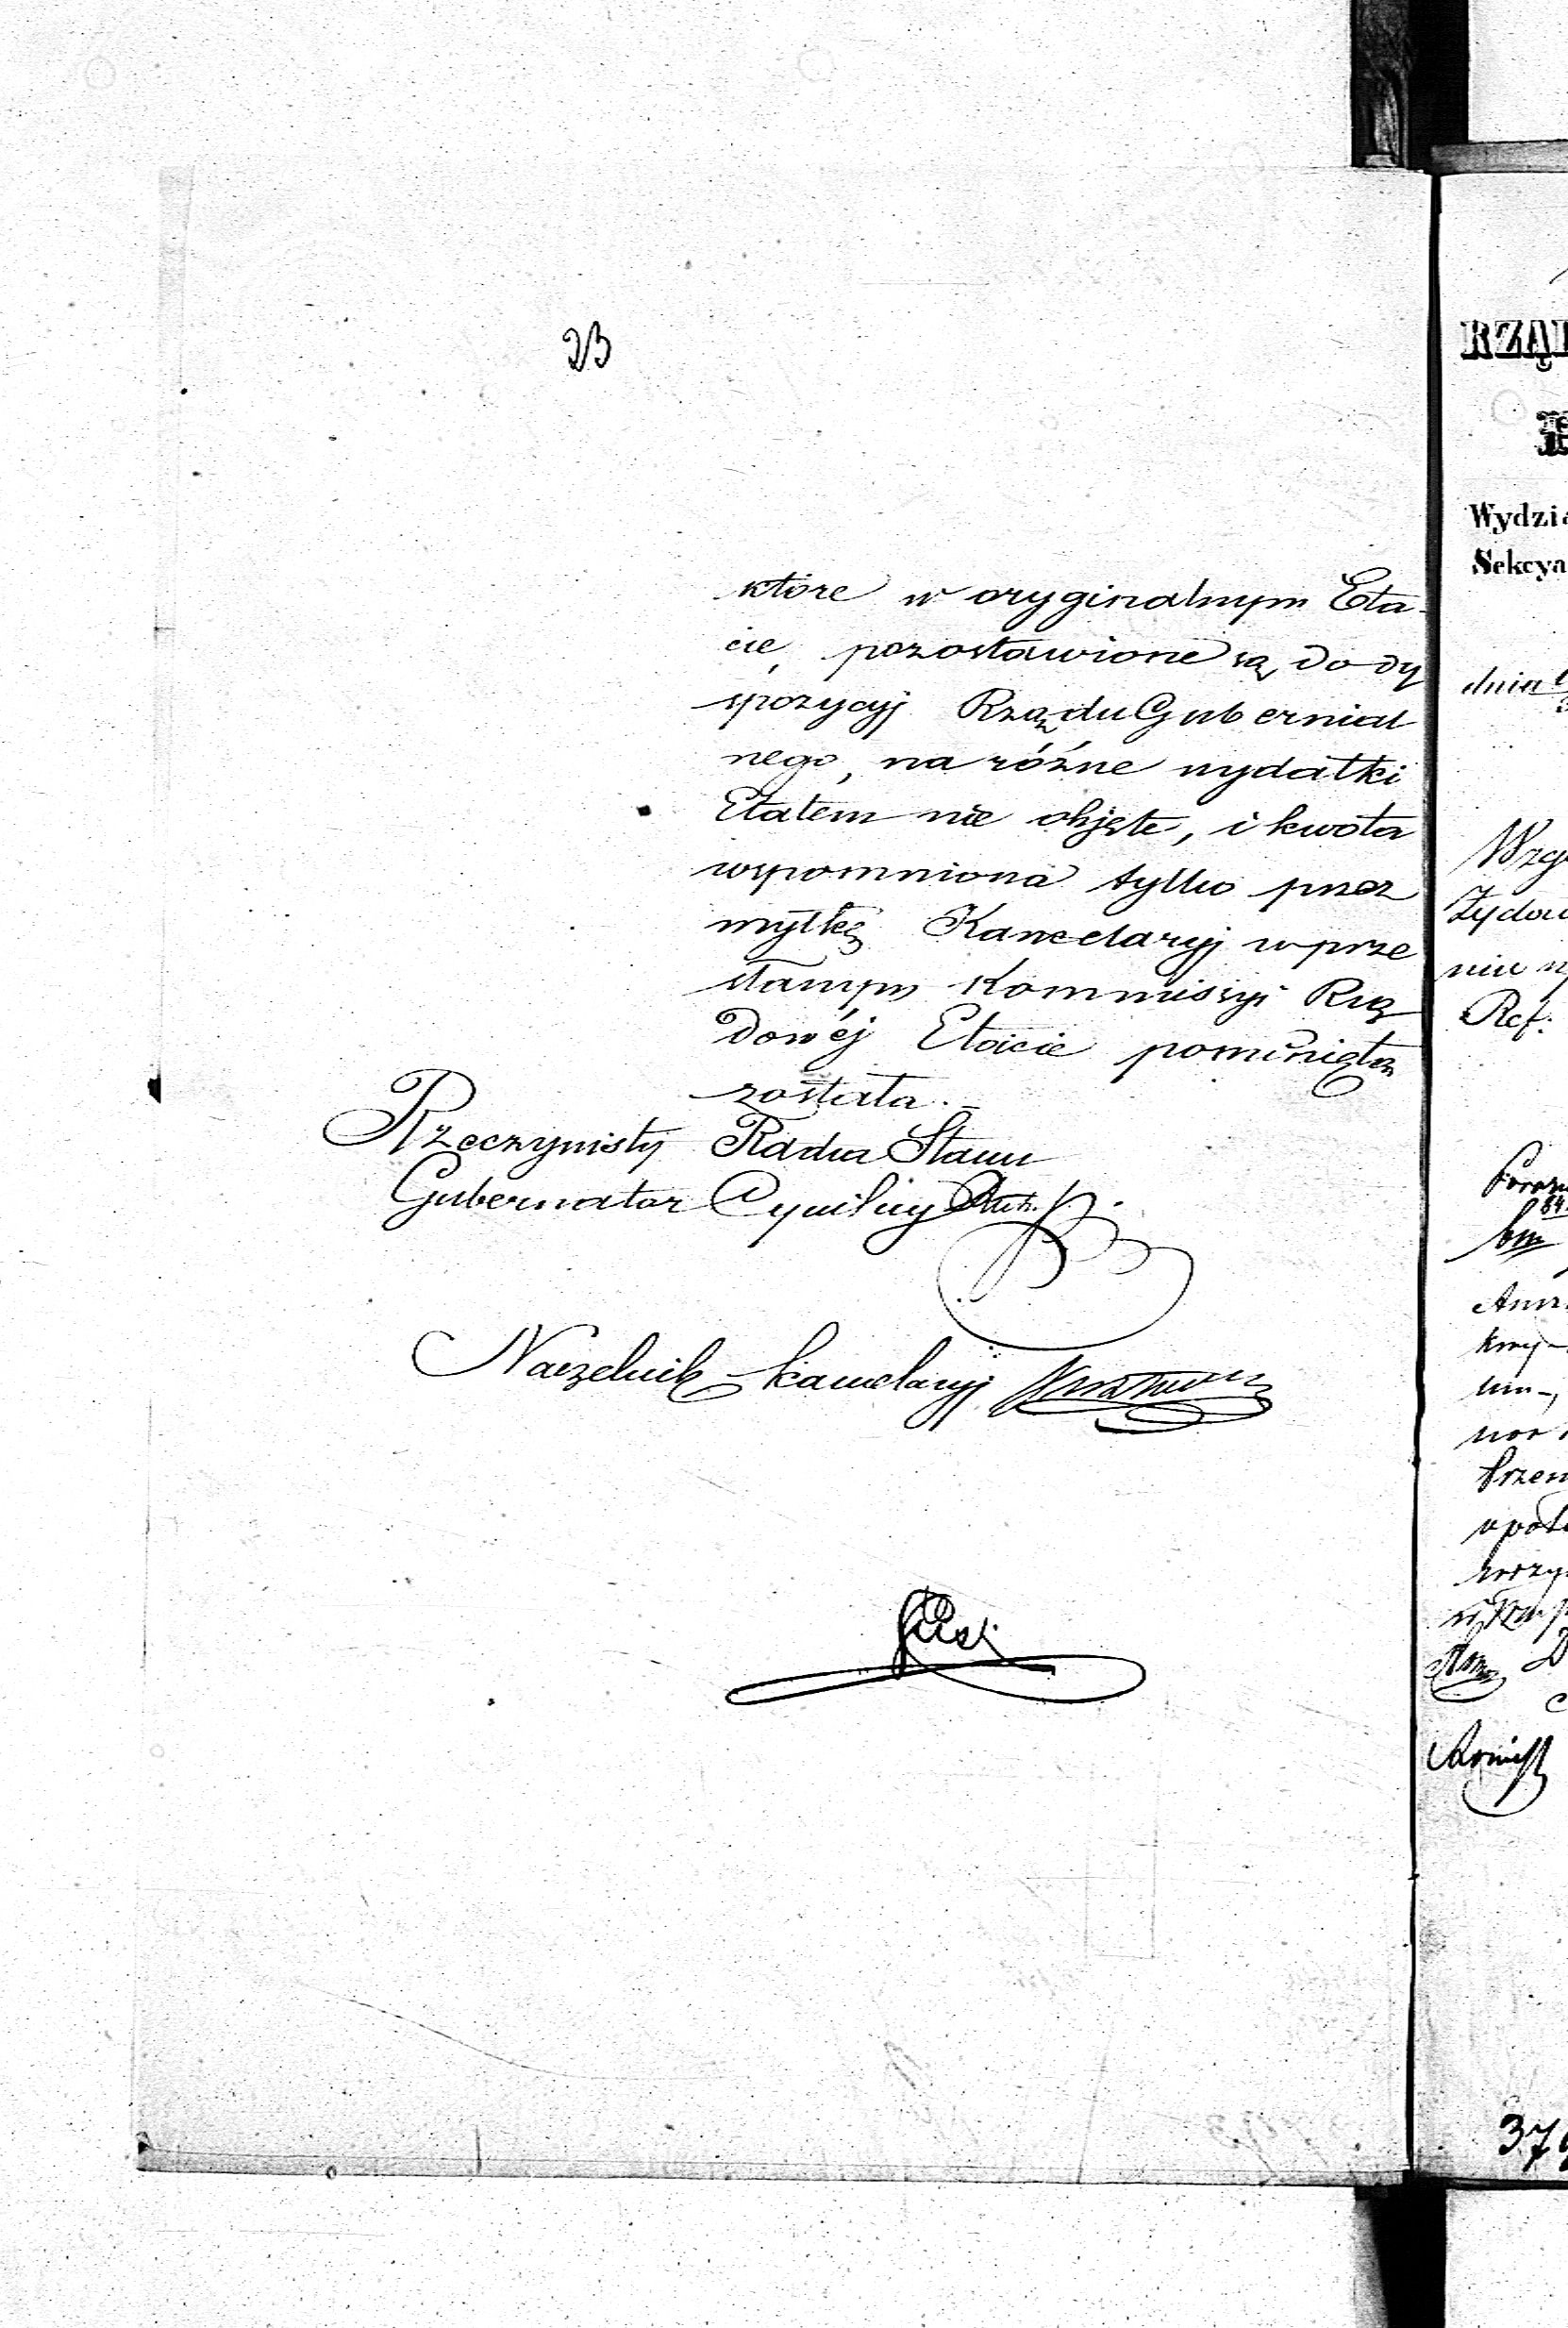 23
które w oryginalnym Eta-
cie, pozostawione są do dy
spozycyj Rządu Gubernial
nego, na różne wydatki
Etatem nie objęte, i kwota
wspomniona tylko przez
myłkę Kancelaryj w prze
słanym Kommissyi Rzą
dowéj Etacie pominięta
została.
Rzeczywisty Radca Stanu
Gubernator Cywilny
Naczelnik Kancelaryj
RZĄD
Wydzia
Sekcya
dnia
Wzgl
Żydow
niu
Ref:
379